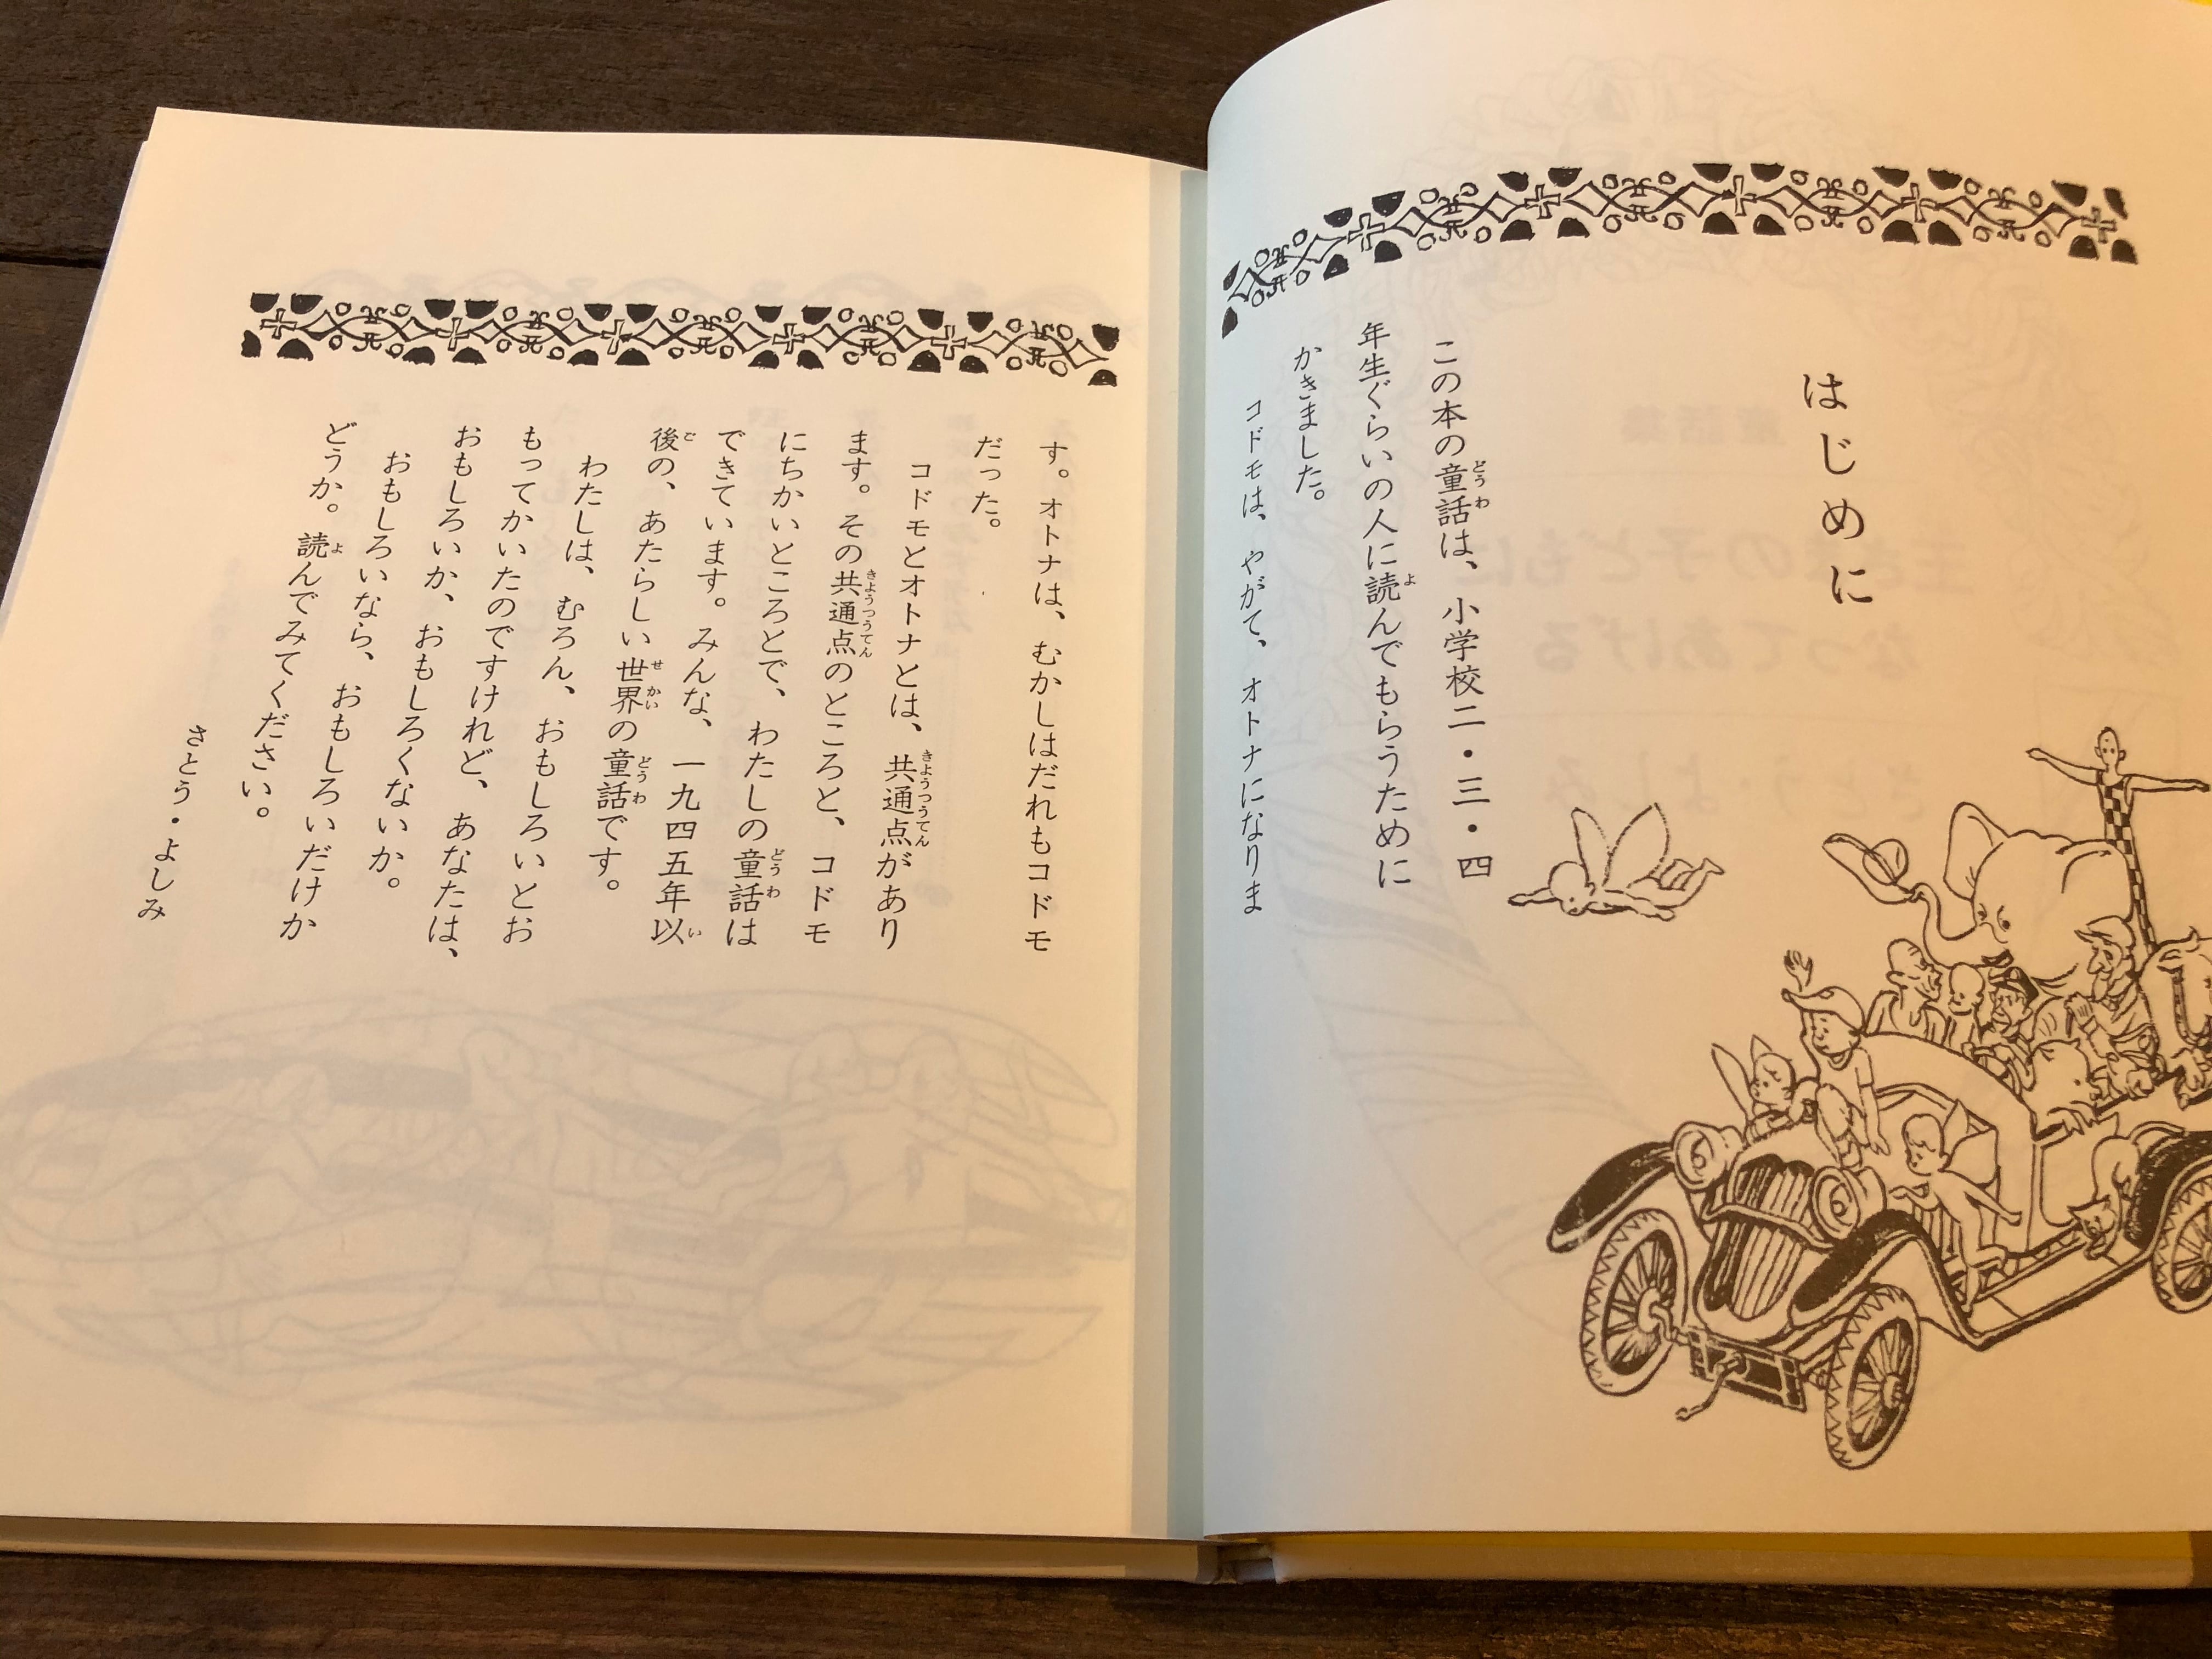 はじめに
この本の童話は、小学校二・三・四
年生ぐらいの人に読んでもらうために
かきました。
コドモは、やがて、オトナになりま
す。オトナは、むかしはだれもコドモ
だった。
コドモとオトナとは、共通点があり
ます。その共通点のところと、コドモ
にちかいところとで、わたしの童話は
できています。みんな、一九四五年以
後の、あたらしい世界の童話です。
わたしは、むろん、おもしろいとお
もってかいたのですけれど、あなたは、
おもしろいか、おもしろくないか。
おもしろいなら、おもしろいだけか
どうか。読んでみてください。
さとう・よしみ